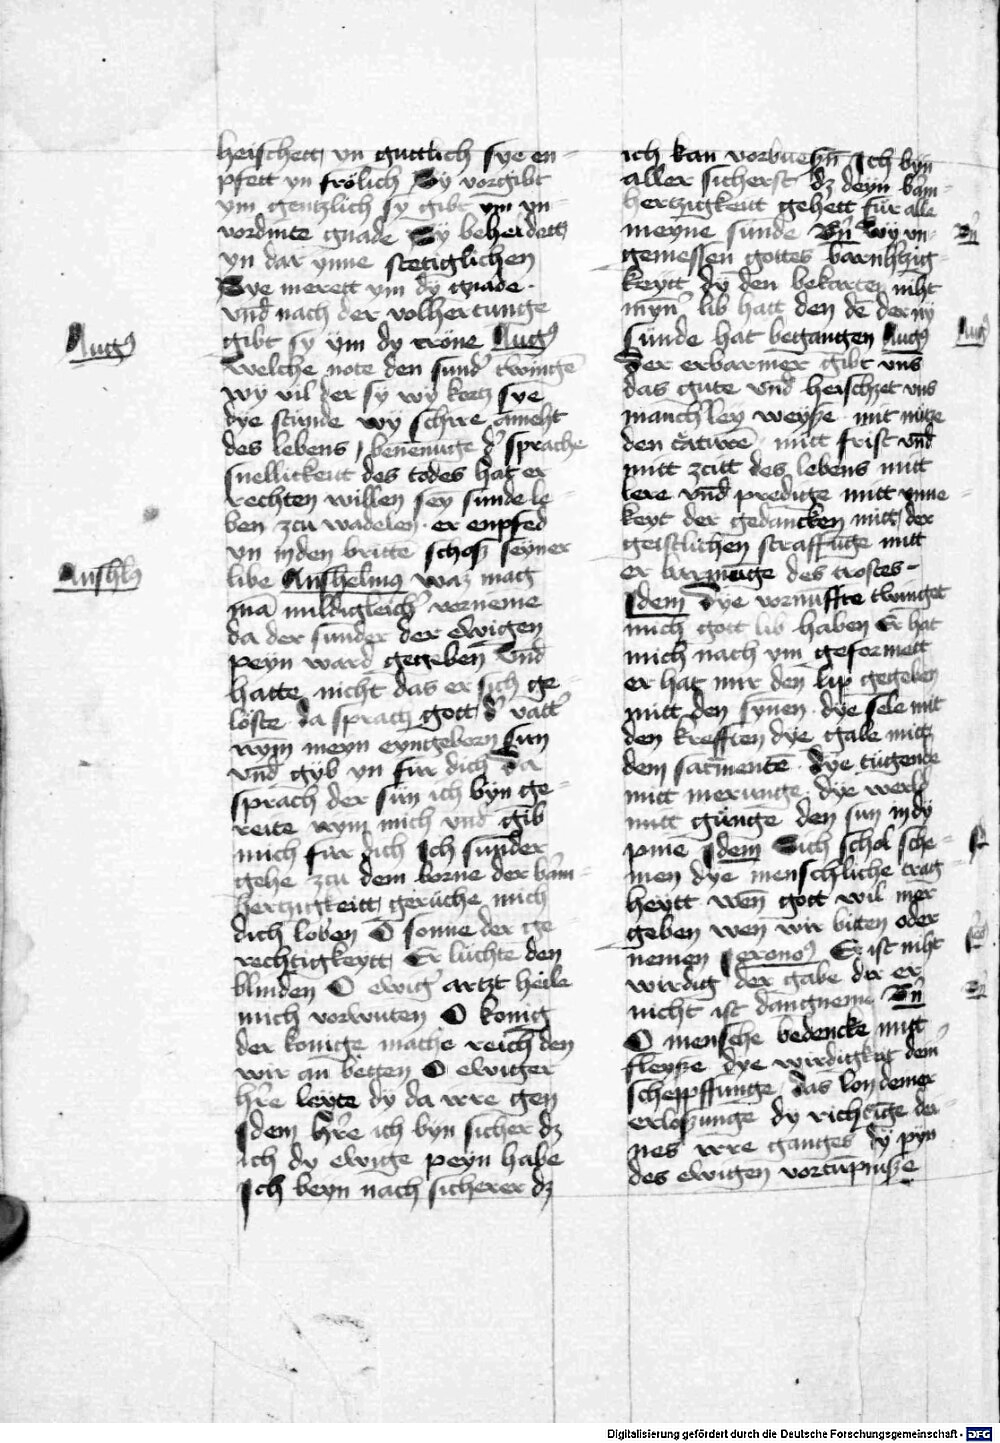 heischett vn guttlich sye en-
pfett vn frölich Sy vorgibt
ym gentzlich sy gibt ym vn-
vordinte gnade Sy beheidett
vn dar ynne stetiglichen
Sye merett ym dy gnade.
vnd nach der volhertunge
gibt sy ym dy cröne Aug9
welche note den sund' twinge
wy vil der sy wy kortz sye
dye stunde wy schire
des lebens / benemunge d' sprache
snellickeit des todes hat er
rechten willen seȳ sunde le-
ben zcu wadelen. er enpfed
vn in den britte schosz seyner
libe Anshelm9 waz mag
mā mildigleich' vorneme
da der sunder der ewigen
peyn ward gegeben Vnd
hatte nicht das er sich ge-
löste. da sprach gott d' vatt'
nym meyn eyngeborn sun
vnd gyb yn fur dich Da
sprach der sun ich byn ge-
reite nym mich vnd gib
mich fur dich Ich sunder
gehe zcu dem borne der bam-
hertzigkeitt geruche mich
dich loben O sonne der ge
rechtigkeytt Er luchte den
blinden O ewig' artzt heile
mich vorwuten O konig
der konige mache reich den
wir an betten O ewiger
h're leyte dy da irre gen
Idem H're ich byn sicher dz
ich dy ewige peyn habe
Ich beyn nach sicherer dz
Aug9
Anshl9
ich kan vorbussn Ich byn
aller sicherst dz deyn bam-
hertzigkeitt gehett fur alle
meyne sunde Bn' Wy vn-
gemessen gottes barmhtzig-
keytt dy den bekarten niht
myn' lib hatt den dē der ny
sunde hat begangen Aug9
Der erbarmer gibt vns
das gute vnd heischet vns
manch'ley weysze. mit nutze
den c'ature. mitt frist vnd
mitt zcitt des lebens mitt
lere vnd predige mitt ynne-
keyt der gedancken mitt der
geistlichen straffuge mitt
er barmeige des trostes-
Idem Dye vornuffte twinget
mich gott lib haben Er hat
mich nach ym geformett
er hat mir den lip gegeben
mitt den synen. dye sele mit
den krefften dye gabe mitt
dem sacmente. dye tugende
mitt merunge. dye werlt
mitt gunge den sun in dy
pine Idem Sich schol sche-
men dye menschliche trag
heytt wen gott wil mer
geben wen wir bitten oder
nemen Jeronō9 Er ist niht
wirdig der gabe der er
nicht ist dangneme Bn'
O mensche bedencke mitt
fleysze dye wirdigkeit dem'
scheppffunge das lon demer
erloszunge dy richtige dei-
nes irre ganges dy pyn
des ewigen vortupnisze
Bn'
Aug9
Bn'